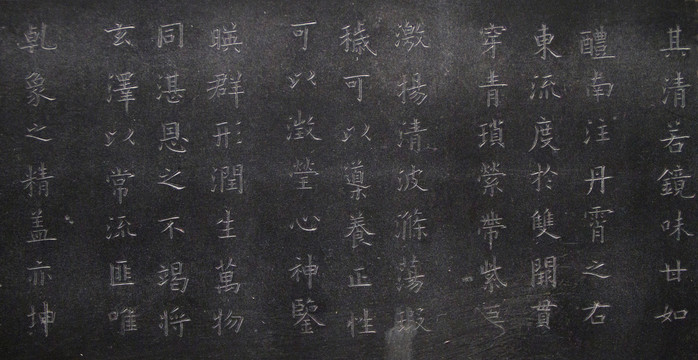 其清若鏡味甘如
醴南注丹霄之右
東流度於雙闕貫
穿青瑣縈帶紫房
激揚清波滌蕩瑕
穢可以導養正性
可以澂瑩心神鑒
暎群形潤生萬物
同湛恩之不竭將
玄澤以常流匪唯
乹象之精盖亦坤